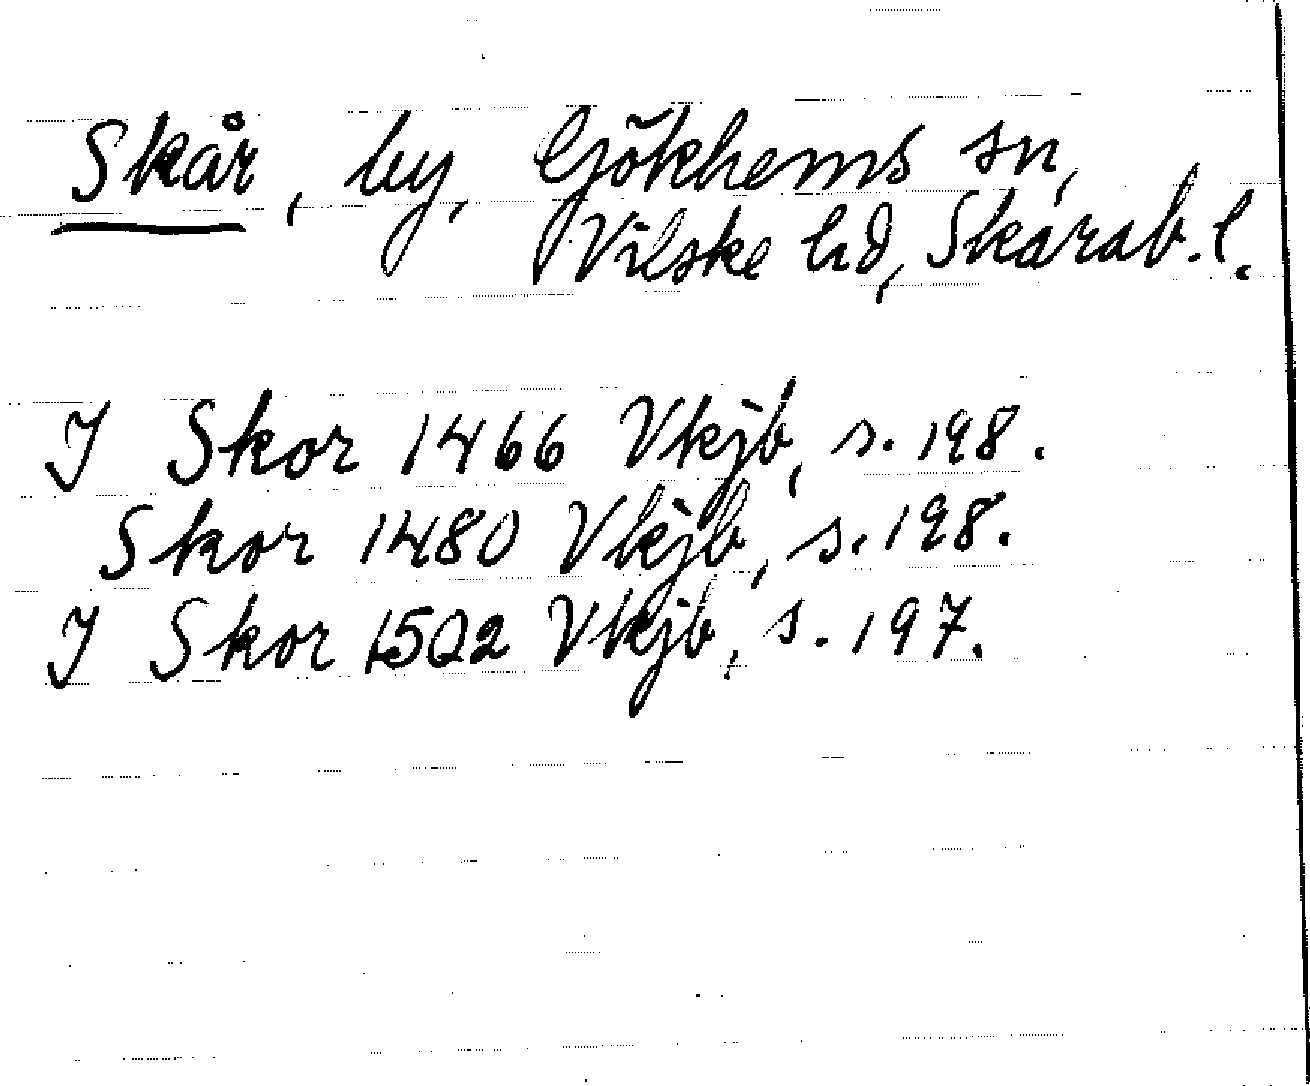 Skår, by, Gökhems sn,
Vilske hd, Skarab. l.
I Skor 1466 Vkjb, s. 198.
Skor 1480 Vkjb, s. 198.
I Skor 1502 Vkjb, s. 197.